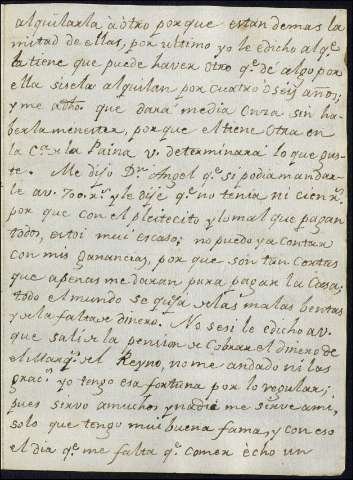 alquilarla à otro porque estan demas la
mitad de ellas, por ultimo yo le è dicho al qe.
la tiene que puede haver otro qe. dé algo por
ella si se la alquilan por cuatro ò seis años;
y me a dho. que dará media Onza sin ha-
berla menester, porque el tiene otra en
la Ca. la Paina v. determinará lo que gus-
te. Me dijo Dn. Angel qe. si podia mandar-
le a v. 700. rs. y le dije qe. no tenia ni cien rs.
por que con el pleitecito y lo mal que pagan
todos, estoi mui escaso; no puedo ya contar
con mis ganancias, por que son tan cortas
que apenas me daran para pagar la Casa;
todo el mundo se queja de las malas bentas
y de la falta de dinero. No se si le è dicho a v.
que salì de la pension de Cobrar el dinero de
el Marqs. del Reyno, no me an dado ni las
gracs. yo tengo esa fortuna por lo regular;
pues sirvo a muchos y nadie me sirve a mi,
solo que tengo mui buena fama, y con eso
el dia qe. me falta qe. comer echo un